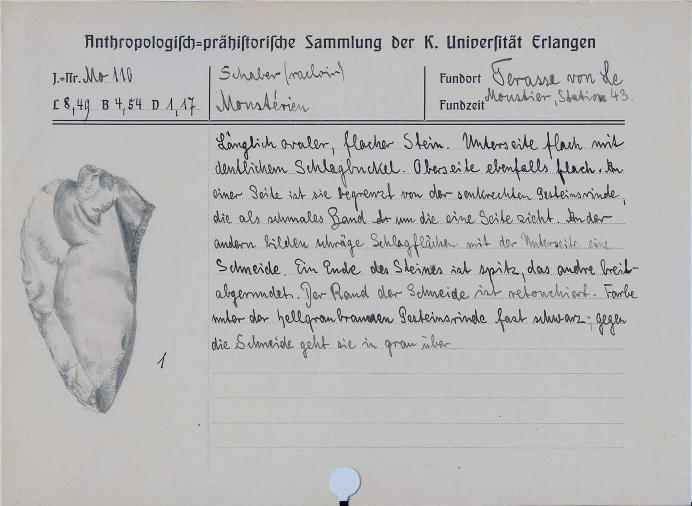 Anthropologisch=prähistorische Sammlung der K. Universität Erlangen
J.=Nr. Mo 110
L 8,49 B 4,54 D 1,17
Schaber (racloir)
Moustérien
Fundort Terasse von Le
Moustier, Station 43.
Fundzeit
Länglich ovaler, flacher Stein. Unterseite flach mit
deutlichem Schlagbuckel. Oberseite ebenfalls flach. An
einer Seite ist sie begrenzt von der senkrechten Gesteinsrinde,
die als schmales Band um die eine Seite zieht. An der
andern bilden schräge Schlagflächen mit der Unterseite eine
Schneide. Ein Ende des Steines ist spitz, das andre breit-
abgerundet. Der Rand der Schneide ist retouchiert. Farbe
unter der hellgraubraunen Gesteinsrinde fast schwarz; gegen
die Schneide geht sie in grau über
1